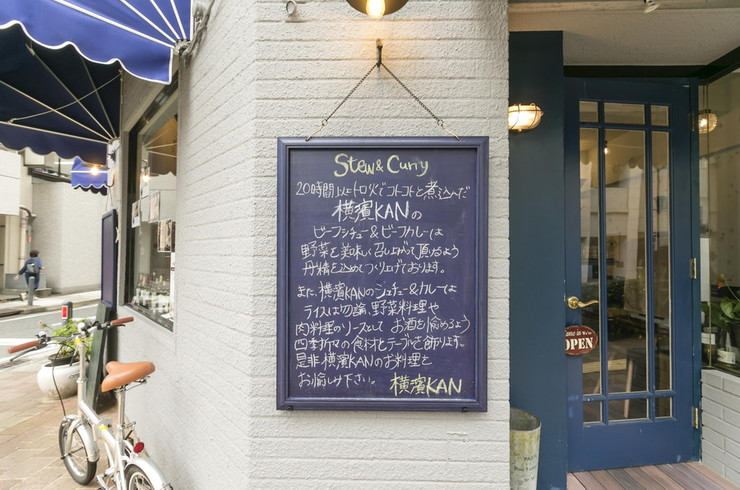 Stew & Curry
20時間以上トロ火でコトコトと煮込んだ
横濱KANの
ビーフシチュー&ビーフカレーは
野菜を美味しく召し上がって頂けるよう
丹精を込めてつくり上げております。
また、横濱KANのシチュー&カレーは
ライスは勿論、野菜料理や
肉料理のソースとして お酒も愉めるよう
四季折々の食材とテーブルを飾ります。
是非横濱KANのお料理を
お愉しみ下さい。 横濱KAN
OPEN